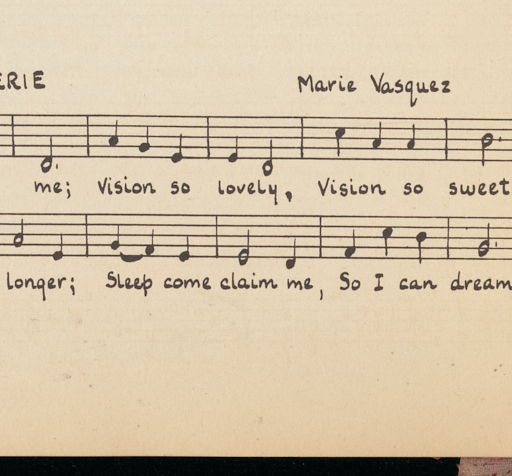 ERIE Marie Vasquez
me; Vision so lovely, Vision so sweet
longer; Sleep come claim me, So I can dream